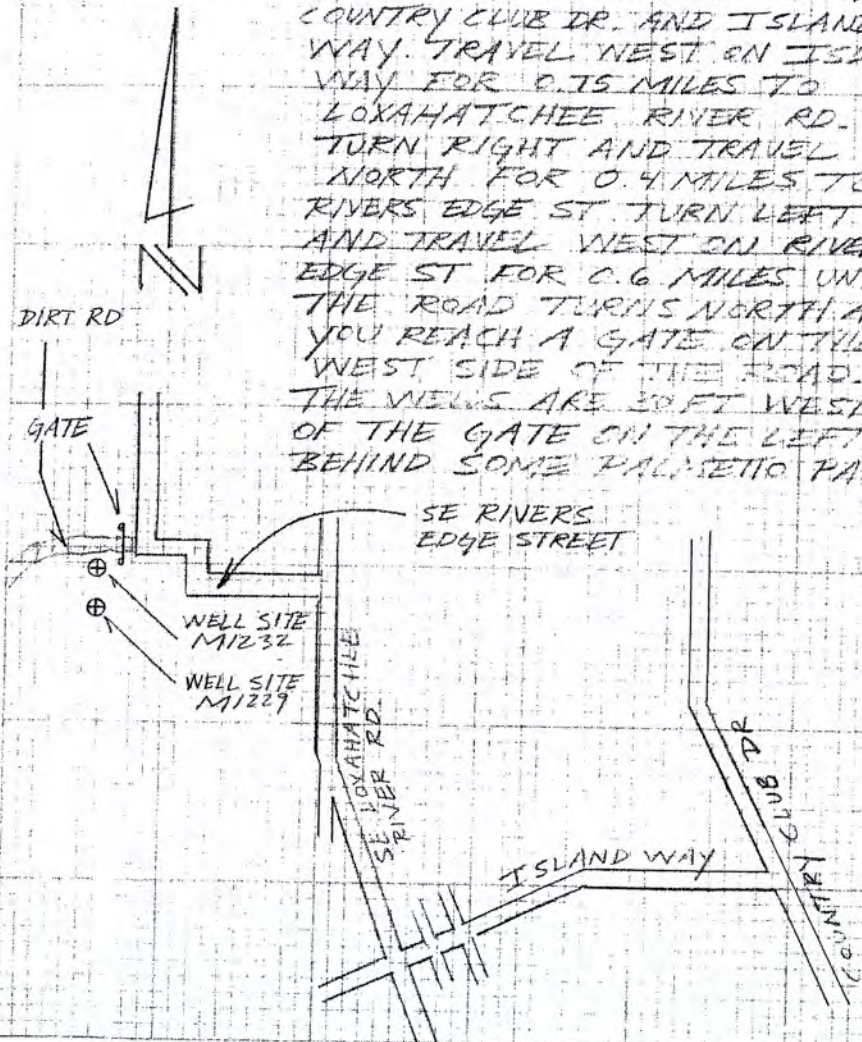 COUNTRY CLUB DR. AND ISLAND
WAY. TRAVEL WEST ON
WAY FOR 0.75 MILES TO
LOXAHATCHEE RIVER RD.
TURN RIGHT AND TRAVEL
NORTH FOR 0.4 MILES TO
RIVERS EDGE ST TURN LEFT
AND TRAVEL WEST ON RIVE
EDGE ST FOR 0.6 MILES UN
THE ROAD TURNS NORTH A
YOU REACH A GATE ON
WEST SIDE OF THE ROAD.
THE WELLS ARE 30 FT WEST
OF THE GATE ON THE LEFT
BEHIND SOME PALMETTO PA
N
DIRT RD
GATE
SE RIVERS
EDGE STREET
WELL SITE
M1232
WELL SITE
M1229
SE LOXAHATCHEE
RIVER RD.
ISLAND WAY
COUNTRY CLUB DR